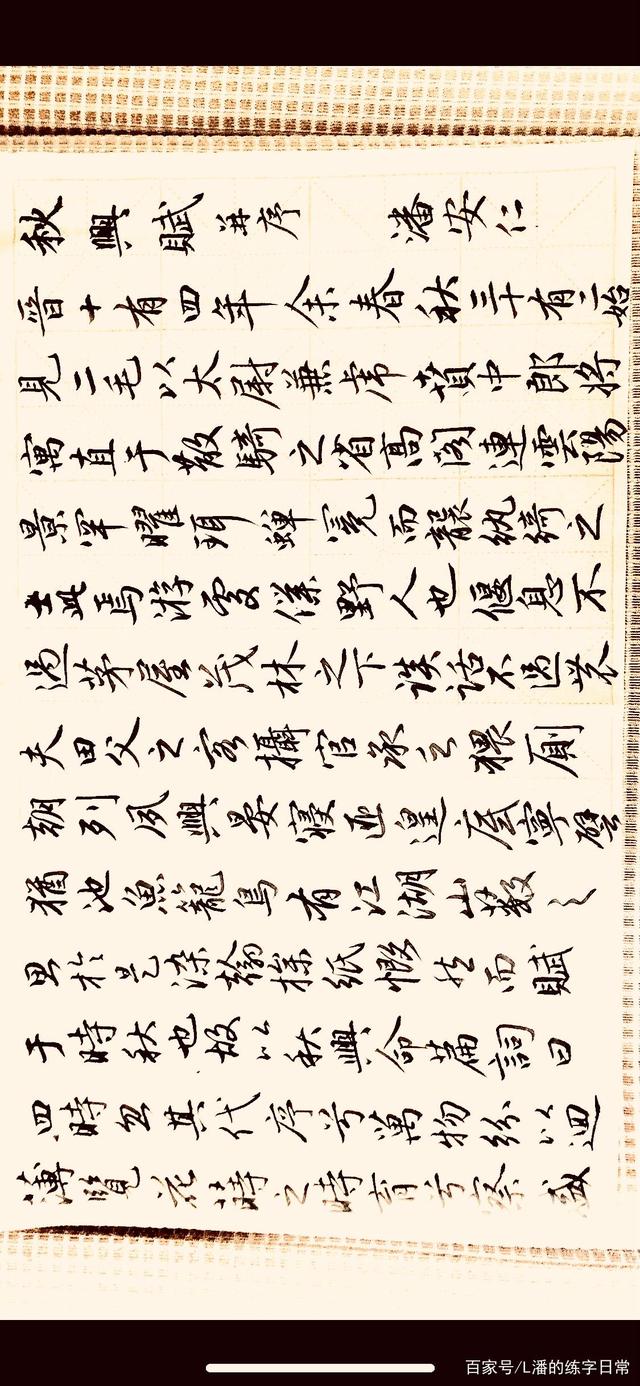 秋興賦并序 潘安仁
晉十有四年余春秋三十有二始
見二毛以太尉兼虎賁中郎將
寓直于散騎之省高閣連雲陽
景罕曜珥蟬冕而襲紈綺之
士此焉游處僕野人也偃息不
過茅屋茂林之下談話不過農
夫田父之客攝官承乏猥厠
朝列夙興晏寢匪遑底寧譬
猶池魚籠鳥有江湖山藪之
思於是染翰操紙慨然而賦
于時秋也故以秋興命篇詞曰
四時忽其代序兮萬物紛以迴
薄覽花蒔之時育兮察盛
百家号/L潘的练字日常